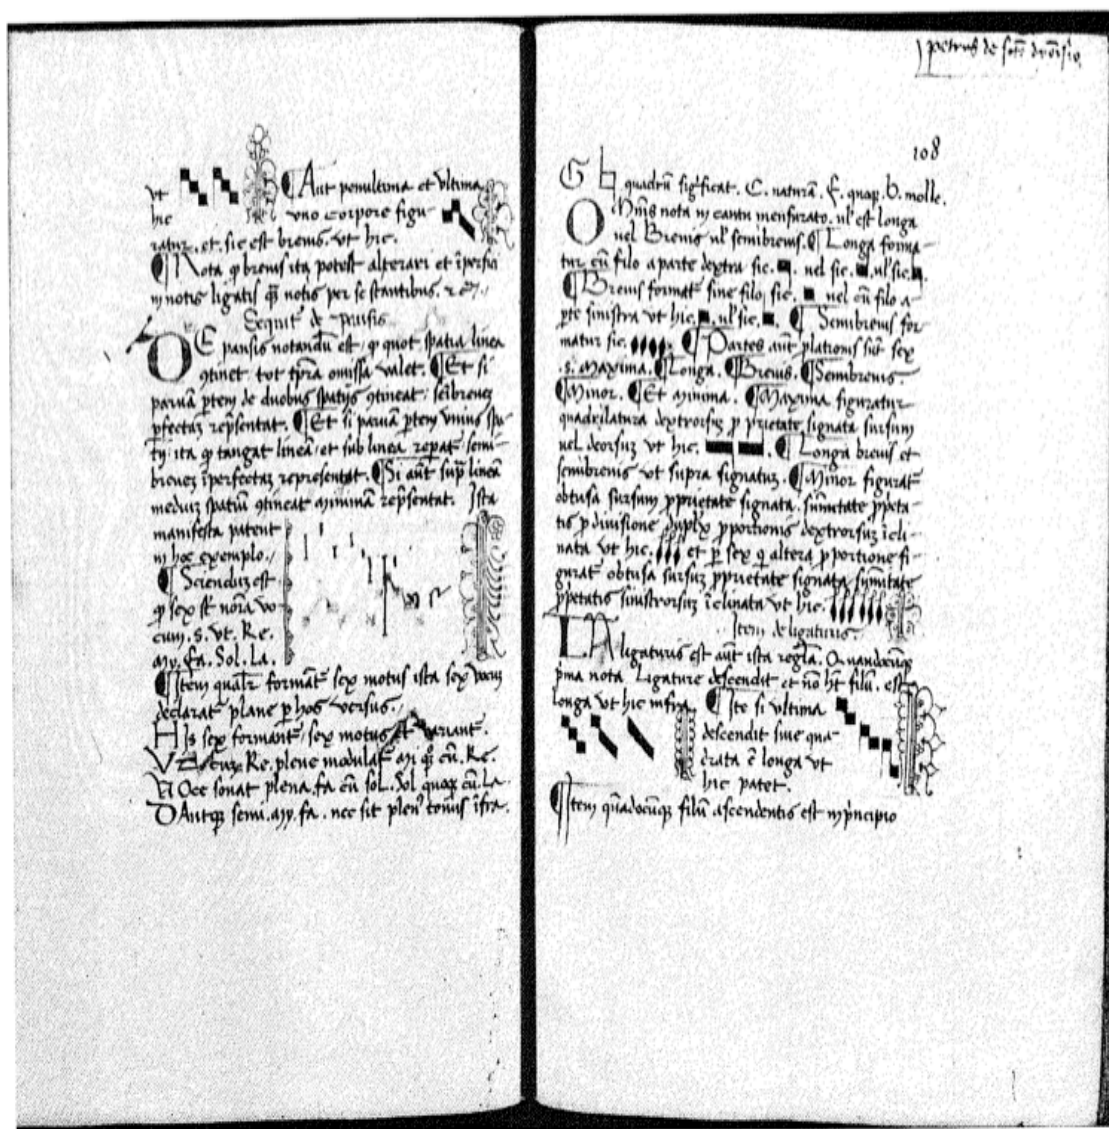 vt ¶ Aut penultima et vltima
hic vno corpore figu-
ratur. et. sic est breuis. vt hic.
¶ Nota ꝙ breuis ita potest alterari et īperfici
in notis ligatis qm̄ notis per se stantibus.
Sequit̄ de pausis
DE pausis notandū est ꝙ quot spatia linea
ꝯtinet tot tp̄ra omissa valet. ¶ Et si
paruā ꝑtem de duobus spatijs ꝯtineat sēibreuez
ꝑfectaz rep̄sentat. ¶ Et si paruā ꝑtem vnius spa-
tij ita ꝙ tangat lineā et sub linea semi-
breuez īperfectaz representat. ¶ Si aūt sup̄ lineā
mediuz spatiū ꝯtineat minimā rep̄sentat. Ista
manifesta patent
in hoc exemplo.
¶ Scienduz est
ꝙ sex st̄ noīa vo-
cum. s. vt. Re.
my. fa. Sol. La.
¶ Item qualr̄ formāt̄ sex motus ista sex vocu
declarat̄ plane ꝑ hos versus.
HIs sex formant̄ sex motus et variant̄
Vt cuz Re. plene modulat̄ mi qꝫ cū. Re.
NOce sonat plena. fa cū sol. Vl quoqꝫ cū. La
DAutqꝫ semi. my. fa. nec sit plen̄ tonus īfra.
petrus de
108
G ♮ quadrū sigīficat. C. naturā. F. quoqꝫ. b. molle.
OMnis nota in cantu mensurato. ul̄ est longa
uel Breuis ul̄ semibreuis. ¶ Longa forma-
tur cū filo a parte dextra sic. uel sic. ul̄ sic.
¶ Breuis format̄ sine filo sic. uel cū filo a
ꝑte sinistra vt hic. ul̄ sic. ¶ Semibreuis for
matur sic. ¶ Partes aūt plationis sūt sex
.s. Maxima. ¶ Longa. ¶ Breuis. ¶ Semibreuis.
¶ Minor. ¶ Et minima. ¶ Maxima figuratur
quadrilatura dextrorsuz ꝓ prietate signata sursum
uel deorsuz vt hic. ¶ Longa breuis et
semibreuis vt supra signatuz. ¶ Minor figurat̄
obtusa sursum ꝓprietate signata. sūmitate ꝓpeta-
tis ꝓ diuisione duplx ꝓportionis dextrorsuz īcli-
nata vt hic. et ꝑ sex q̄ altera ꝓportione fi-
gurat̄ obtusa sursuz ꝓprietate signata sūmitate
ꝓpetatis sinistrorsuz īclinata vt hic.
Item de ligaturis
LA ligaturis est aūt ista regl̄a. Quandocūqꝫ
pͥma nota Ligature descendit et nō ht̄ filū. est
longa vt hic infra. ¶ Ite si vltima
descendit siue qua-
drata ē longa vt
hic patet.
¶ Item quādocūqꝫ filū ascendentis est in pͥncipio